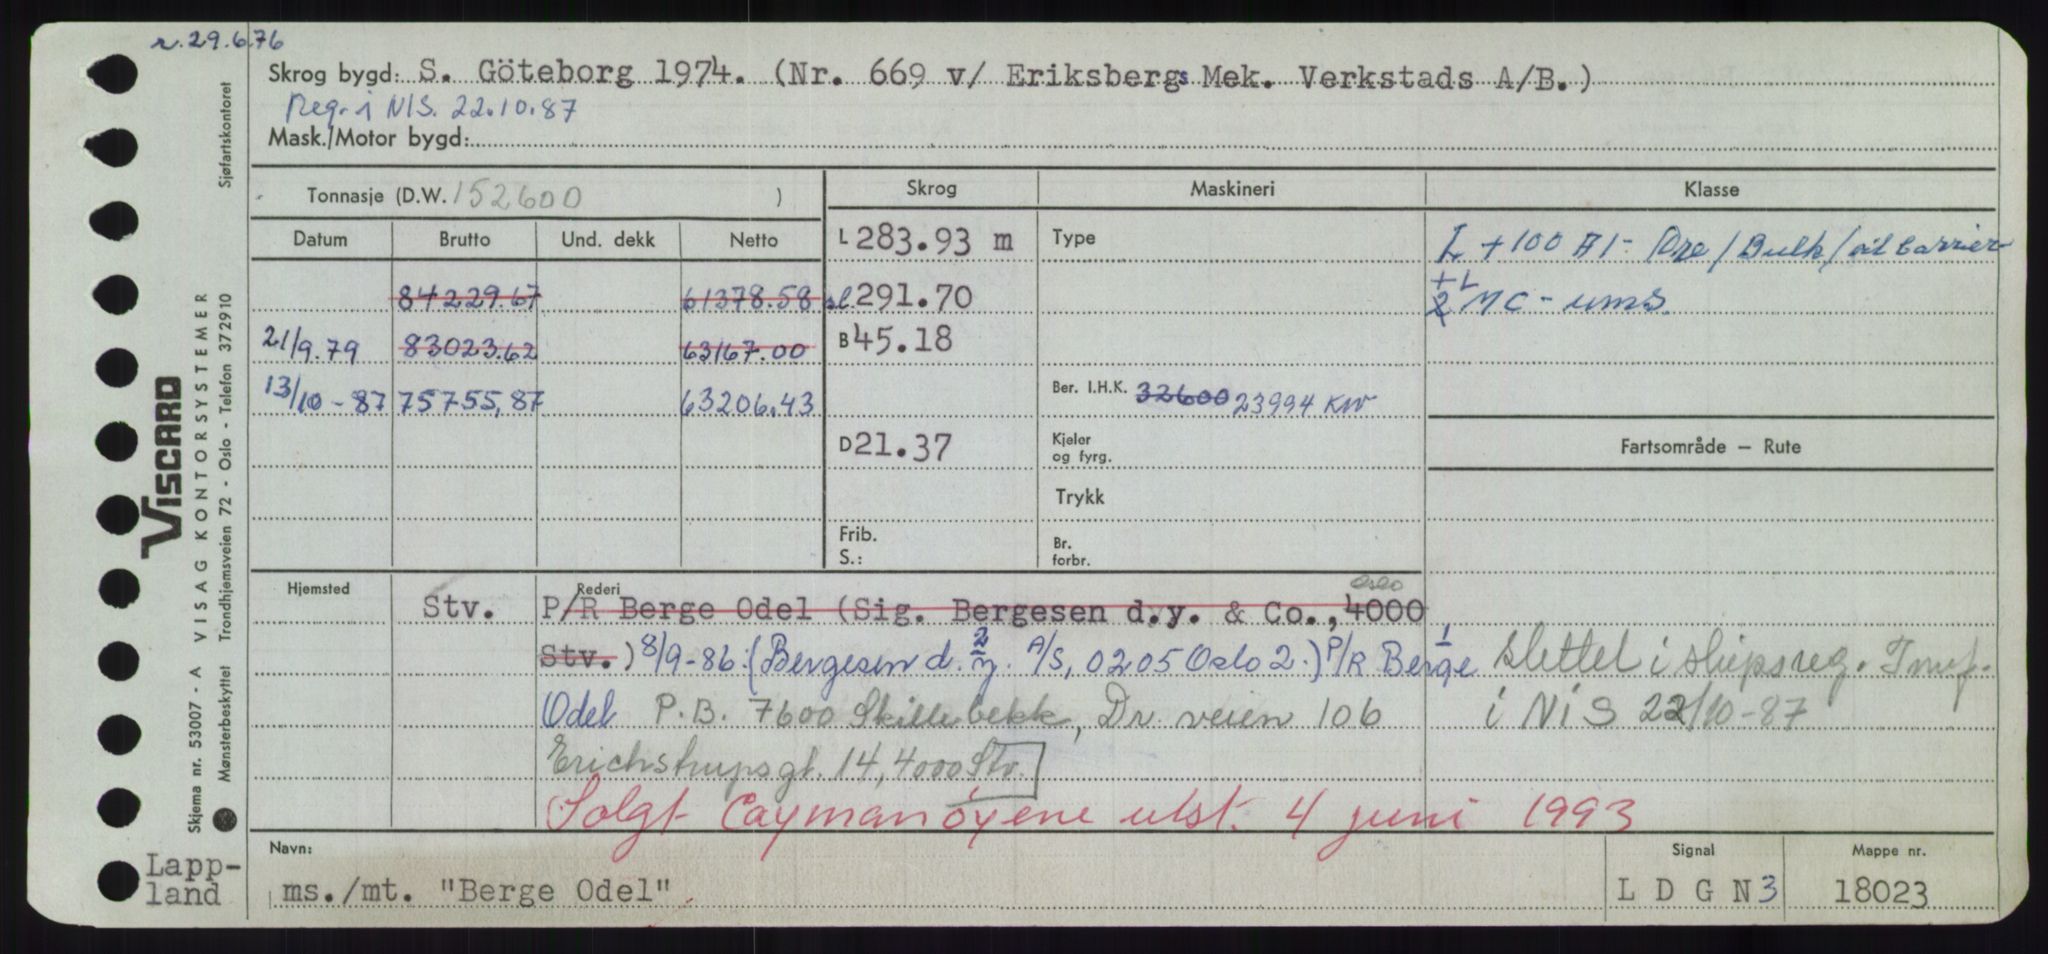 r. 29.6.76
Skrog bygd: S. Göteborg 1974. (Nr. 669 v/ Eriksbergs Mek. Verkstads A/B.)
Reg. i NIS. 22.10.87
Mask./Motor bygd:
Tonnasje (D.W. 152600 )
Skrog Maskineri Klasse
Datum Brutto Und. dekk Netto
L 283.93 m Type
L +100 A1 - Ore/Bulk/oil carrier
84229.67 61378.58 sl 291.70
+L
2 MC - ums.
21/9.79 83023.62 63167.00 B 45.18
13/10 - 87 75755,87 63206.43
Ber. I.H.K. 32600 23994 KW
D 21.37
Kjeler
og fyrg.
Fartsområde — Rute
Trykk
Frib.
S.:
Br.
forbr.
Hjemsted Rederi Oslo
Stv. P/R Berge Odel (Sig. Bergesen d.y. & Co., 4000
Stv.) 8/9-86: (Bergesen d. 2 y. A/S, 0205 Oslo 2.) P/R Berge 1
Slettet i skipsreg.
Odel P.B. 7600 Skillebekk, Dr. veien 106
i NIS 22/10-87
Erichstrupsgt. 14, 4000 Stv.
Solgt Caymanøyene utst. 4 juni 1993
Navn: Signal Mappe nr.
ms./mt. "Berge Odel" L D G N 3 18023
Lapp-
land
VISCARD
VISAG KONTORSYSTEMER
Skjema nr. 53007 - A
Mønsterbeskyttet Trondhjemsveien 72 - Oslo - Telefon 372910 Sjøfartskontoret